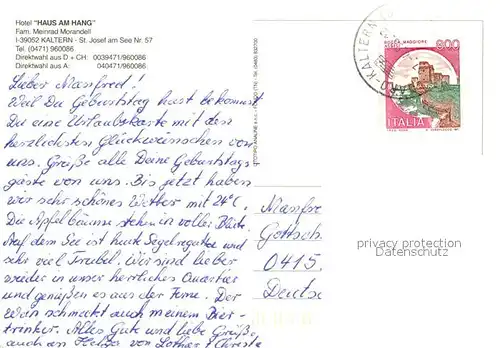 Hotel "HAUS AM HANG"
Fam. Meinrad Morandell
I-39052 KALTERN - St. Josef am See Nr. 57
Tel. (0471) 960086
Direktwahl aus D + CH: 0039471/960086
Direktwahl aus A: 040471/960086
Lieber Manfred!
Weil Du Geburtstag hast bekommst
Du eine Urlaubskarte mit den
herzlichsten Glückwünschen von
uns. Grüße alle Deine Geburtstags
gäste von uns. Bis jetzt haben
wir sehr schönes Wetter mit 24°C.
Die Apfelbäume stehn in voller Blüte.
Auf dem See ist heute Segelregatta und
sehr viel Trubel. Wir sind lieber
wieder in unser herrliches Quartier
und genießen es aus der Ferne. Der
Wein schmeckt auch meinem Bier-
trinker. Alles Gute und liebe Grüße,
auch an von Lothar
ROCCA MAGGIORE
800
ITALIA
KALTERN
Manfre
Gottsch
0415.
Deutsc
privacy protection
Datenschutz